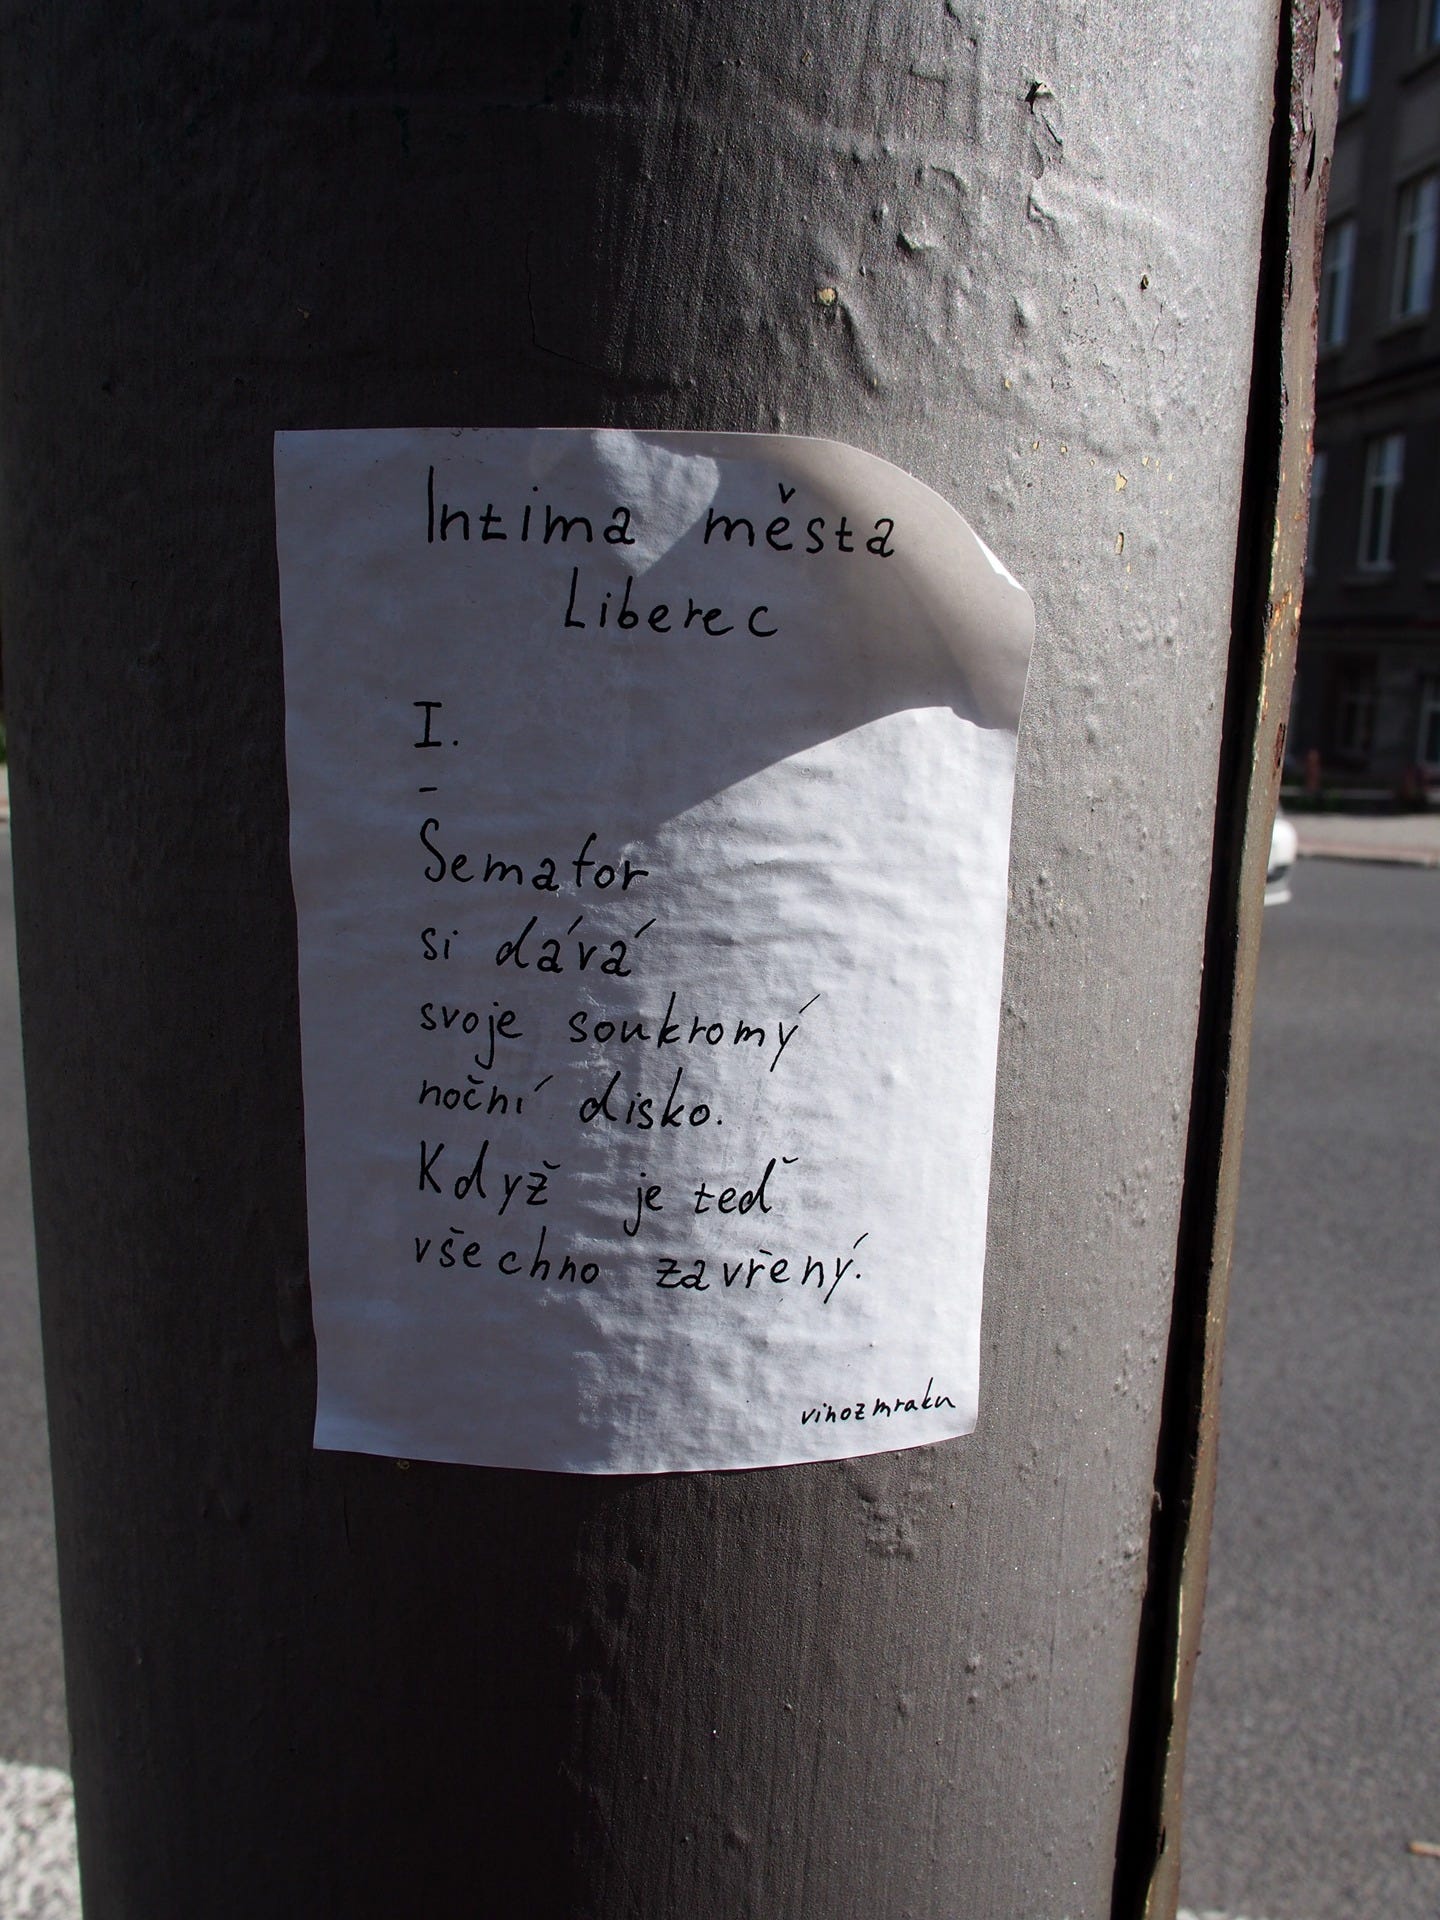 Intima města
Liberec
I.
-
Semafor
si dává
svoje soukromý
noční disko.
Když je teď
všechno zavřený.
vinozmraku